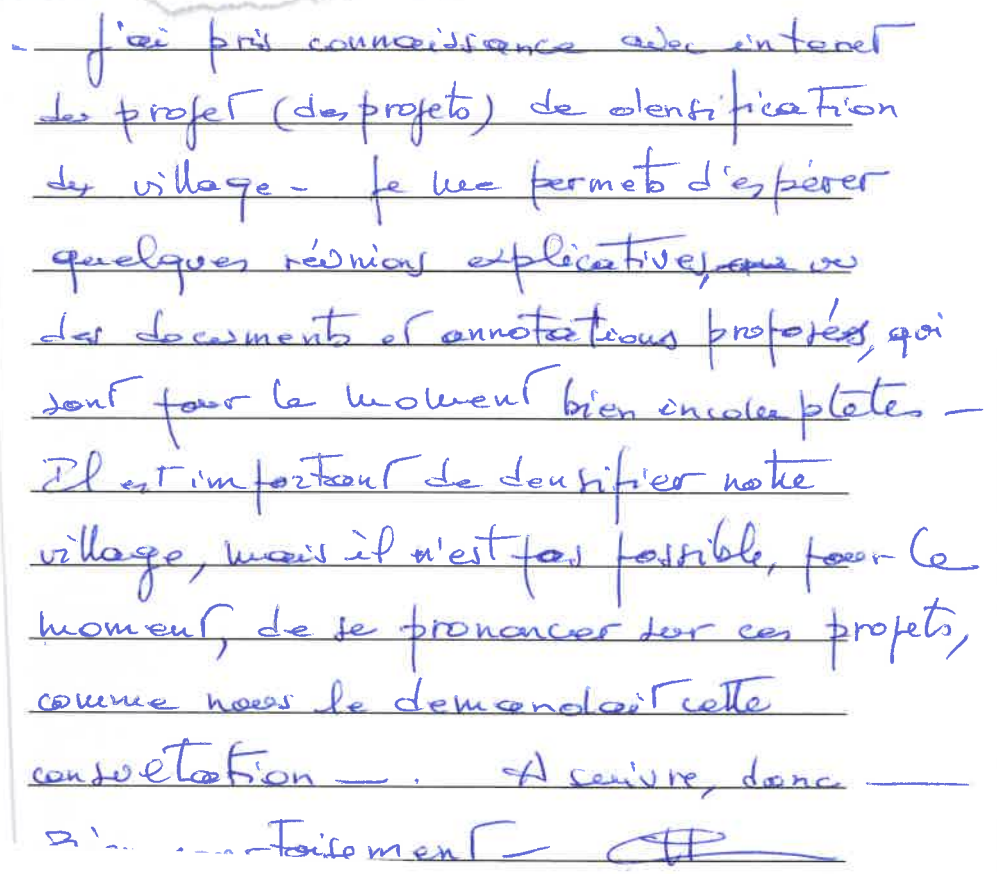 - J'ai pris connaissance avec interet
du projet (des projets) de densification
du village - Je me permets d'espérer
quelques réunions explicatives, vu
des documents et annotations proposées, qui
sont pour le moment bien incomplètes -
Il est important de densifier notre
village, mais il n'est pas possible, pour le
moment, de se prononcer sur ces projets,
comme nous le demandait cette
consultation - . A suivre, donc -